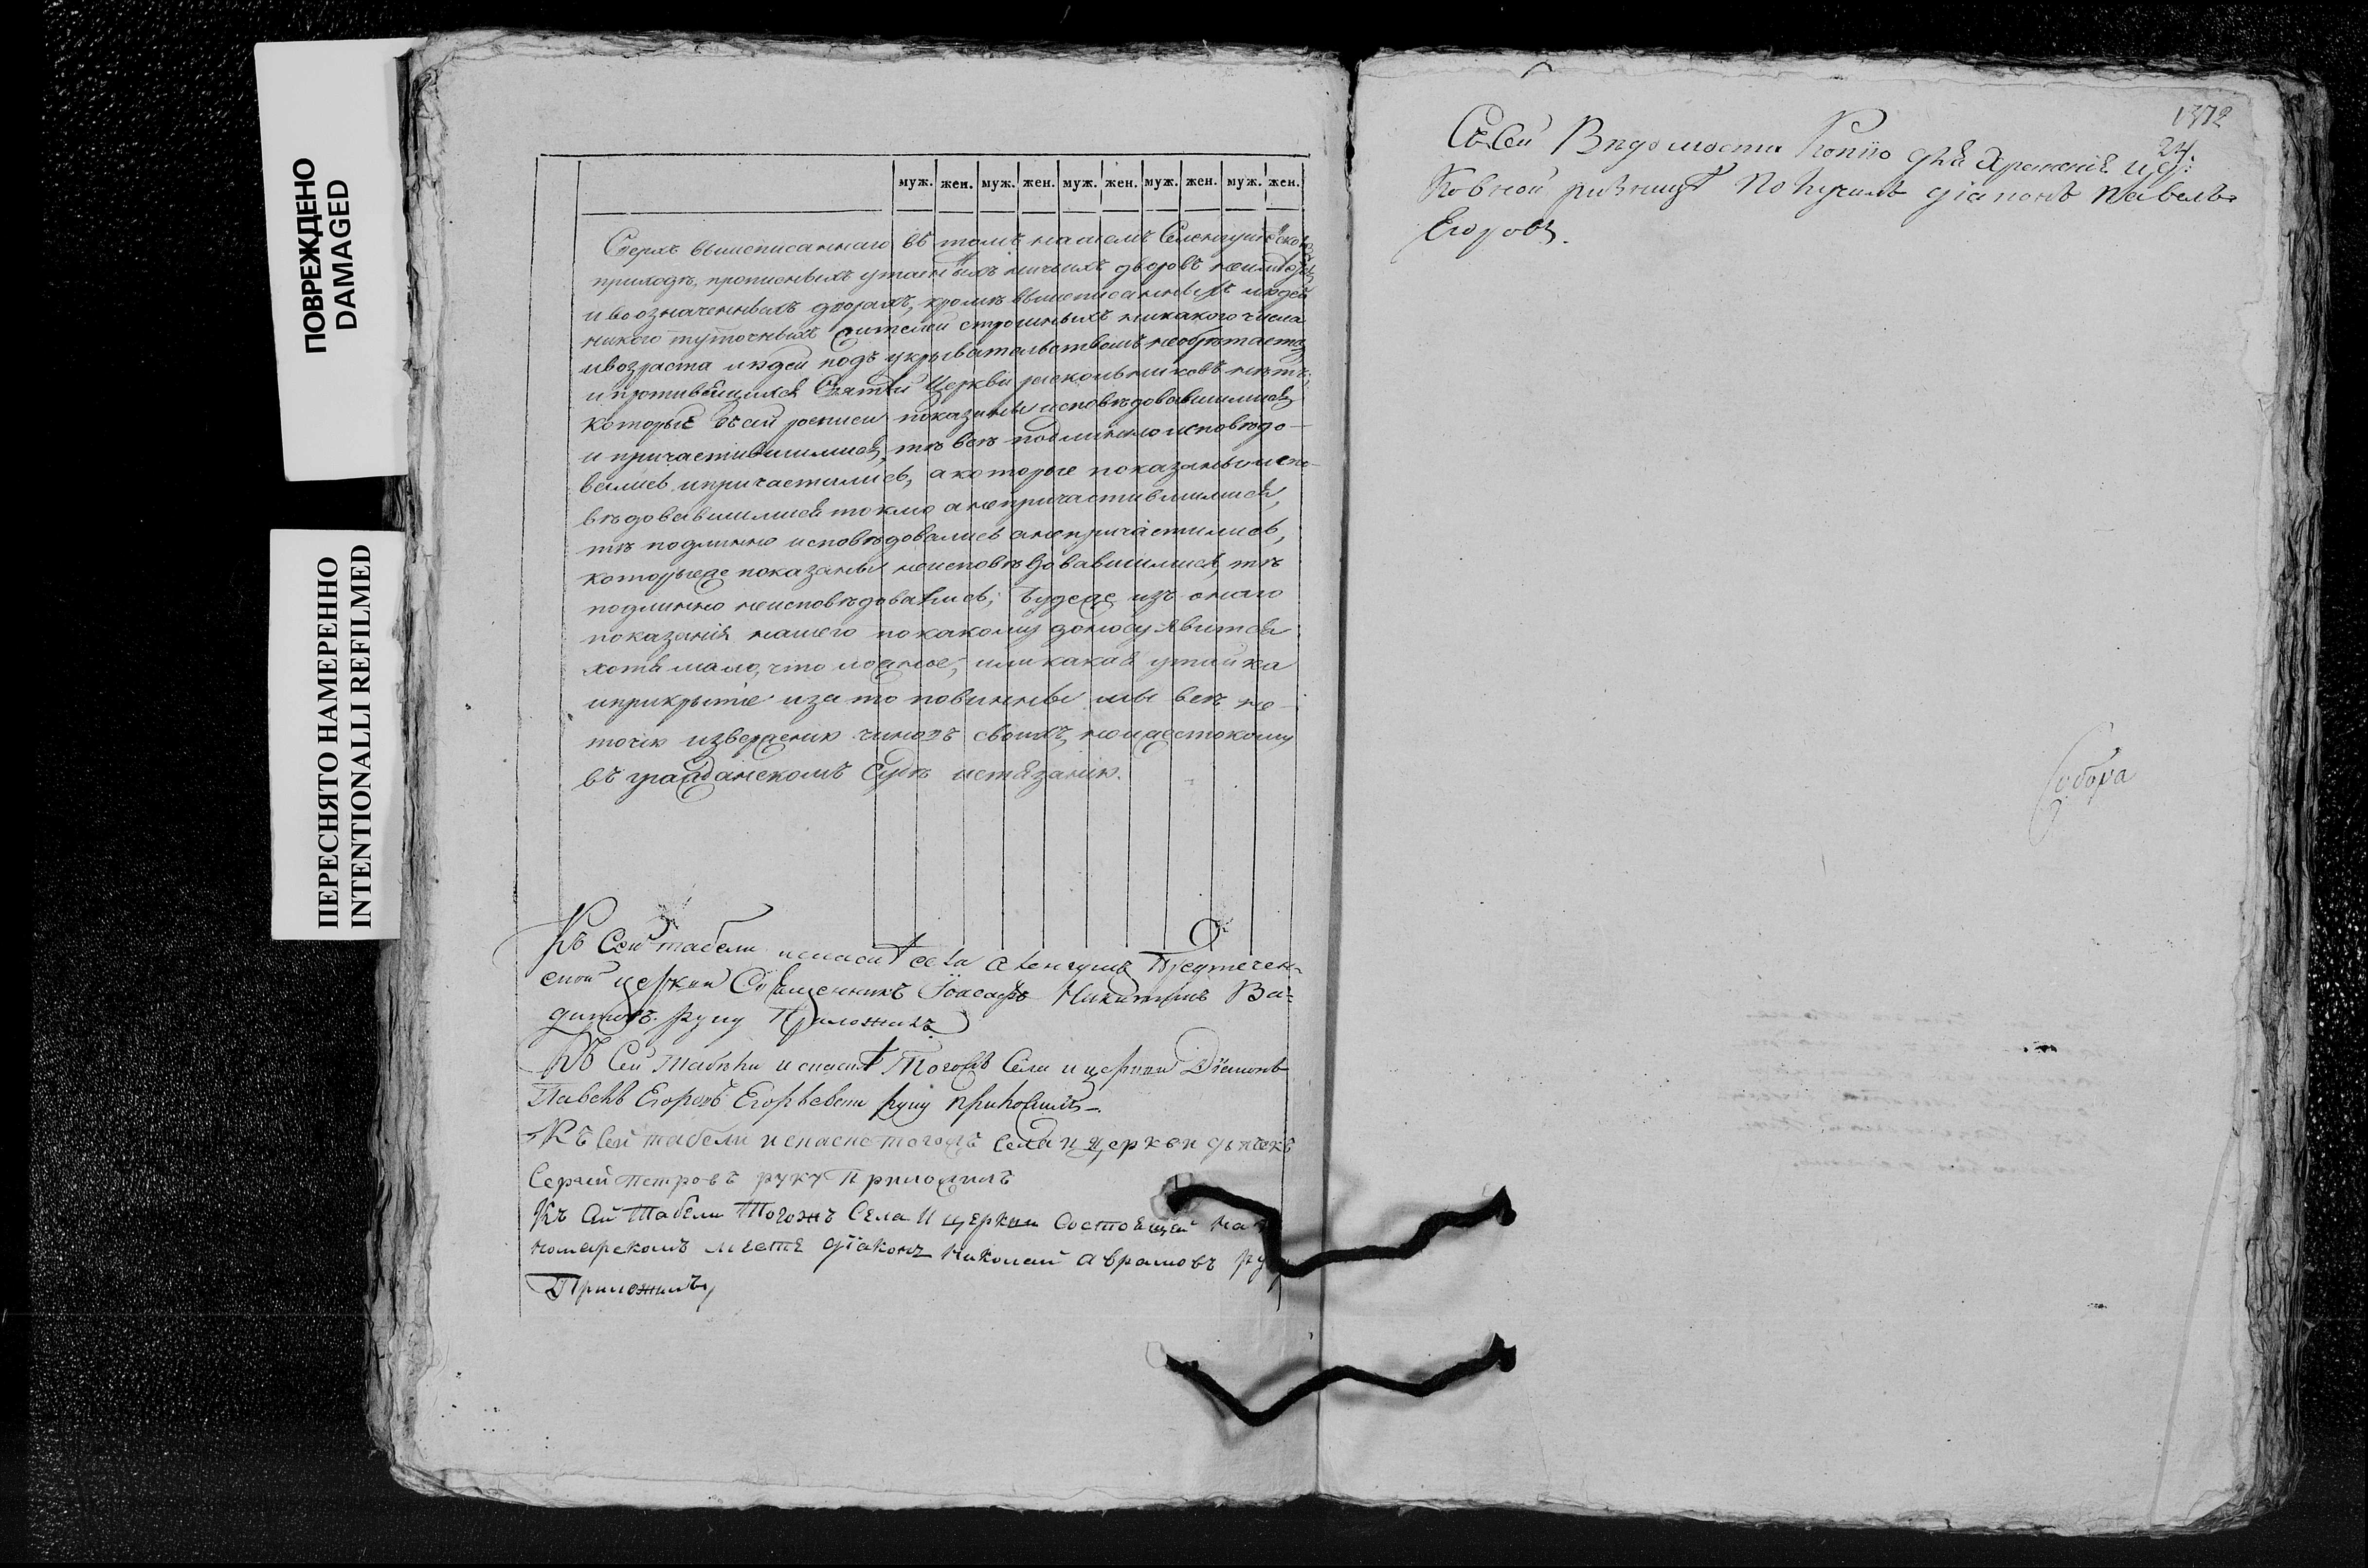 ПОВРЕЖДЕНО
DAMAGED
ПЕРЕСНЯТО НАМЕРЕННО
INTENTIONALLI REFILMED
муж. жен. муж. жен. муж. жен. муж. жен. муж. жен.
Сверхъ вышеписаннаго въ томъ нашемъ
приходѣ, прописныхъ утаенныхъ ничьихъ дворовъ
и во означенныхъ дворахъ, кромѣ вышеписанныхъ людей
никого туточныхъ жителей сторонныхъ никакого чина
и возраста людей подъ укрывательствомъ необрѣтается
и противящихся Святѣй Церкви раскольниковъ нѣтъ;
которые въ сей росписи показаны исповѣдовавшимися
и причастившимися, тѣ всѣ подлинно исповѣдо-
вались и причастились, а которые показаны испо-
вѣдовавшимися токмо а непричастившимися,
тѣ подлинно исповѣдовались а непричастились,
которыеже показаны неисповѣдовавшимися, тѣ
подлинно неисповѣдовались; Будеже изъ онаго
показанія нашего по какому доносу явится
хотя мало, что ложное, или какая утайка
и прикрытіе и за то повинны мы всѣ не
точію изверженію чиновъ своихъ, но и жестокому
въ гражданскомъ Судѣ истязанію.
Къ Сей табели села Предтечен-
ской церкви Священникъ Іоасафъ Никитинъ
руку Приложилъ
Къ Сей табѣли Тогожъ Села и церкви Діаконъ
Павелъ Егоровъ руку приложилъ
Къ Сей табели тогожъ Села и церкви дьячекъ
Сергей Петровъ руку Приложилъ
Къ Сей Табели Тогожъ Села и церкви Состоящей на по
номарскомъ месте діаконъ Николай Аврамовъ
Приложилъ
1372
24
Съ Сей Вѣдомости Копію для храненія цер:
ковной ризницѣ Получилъ діаконъ Павелъ
Егоровъ.
Собора